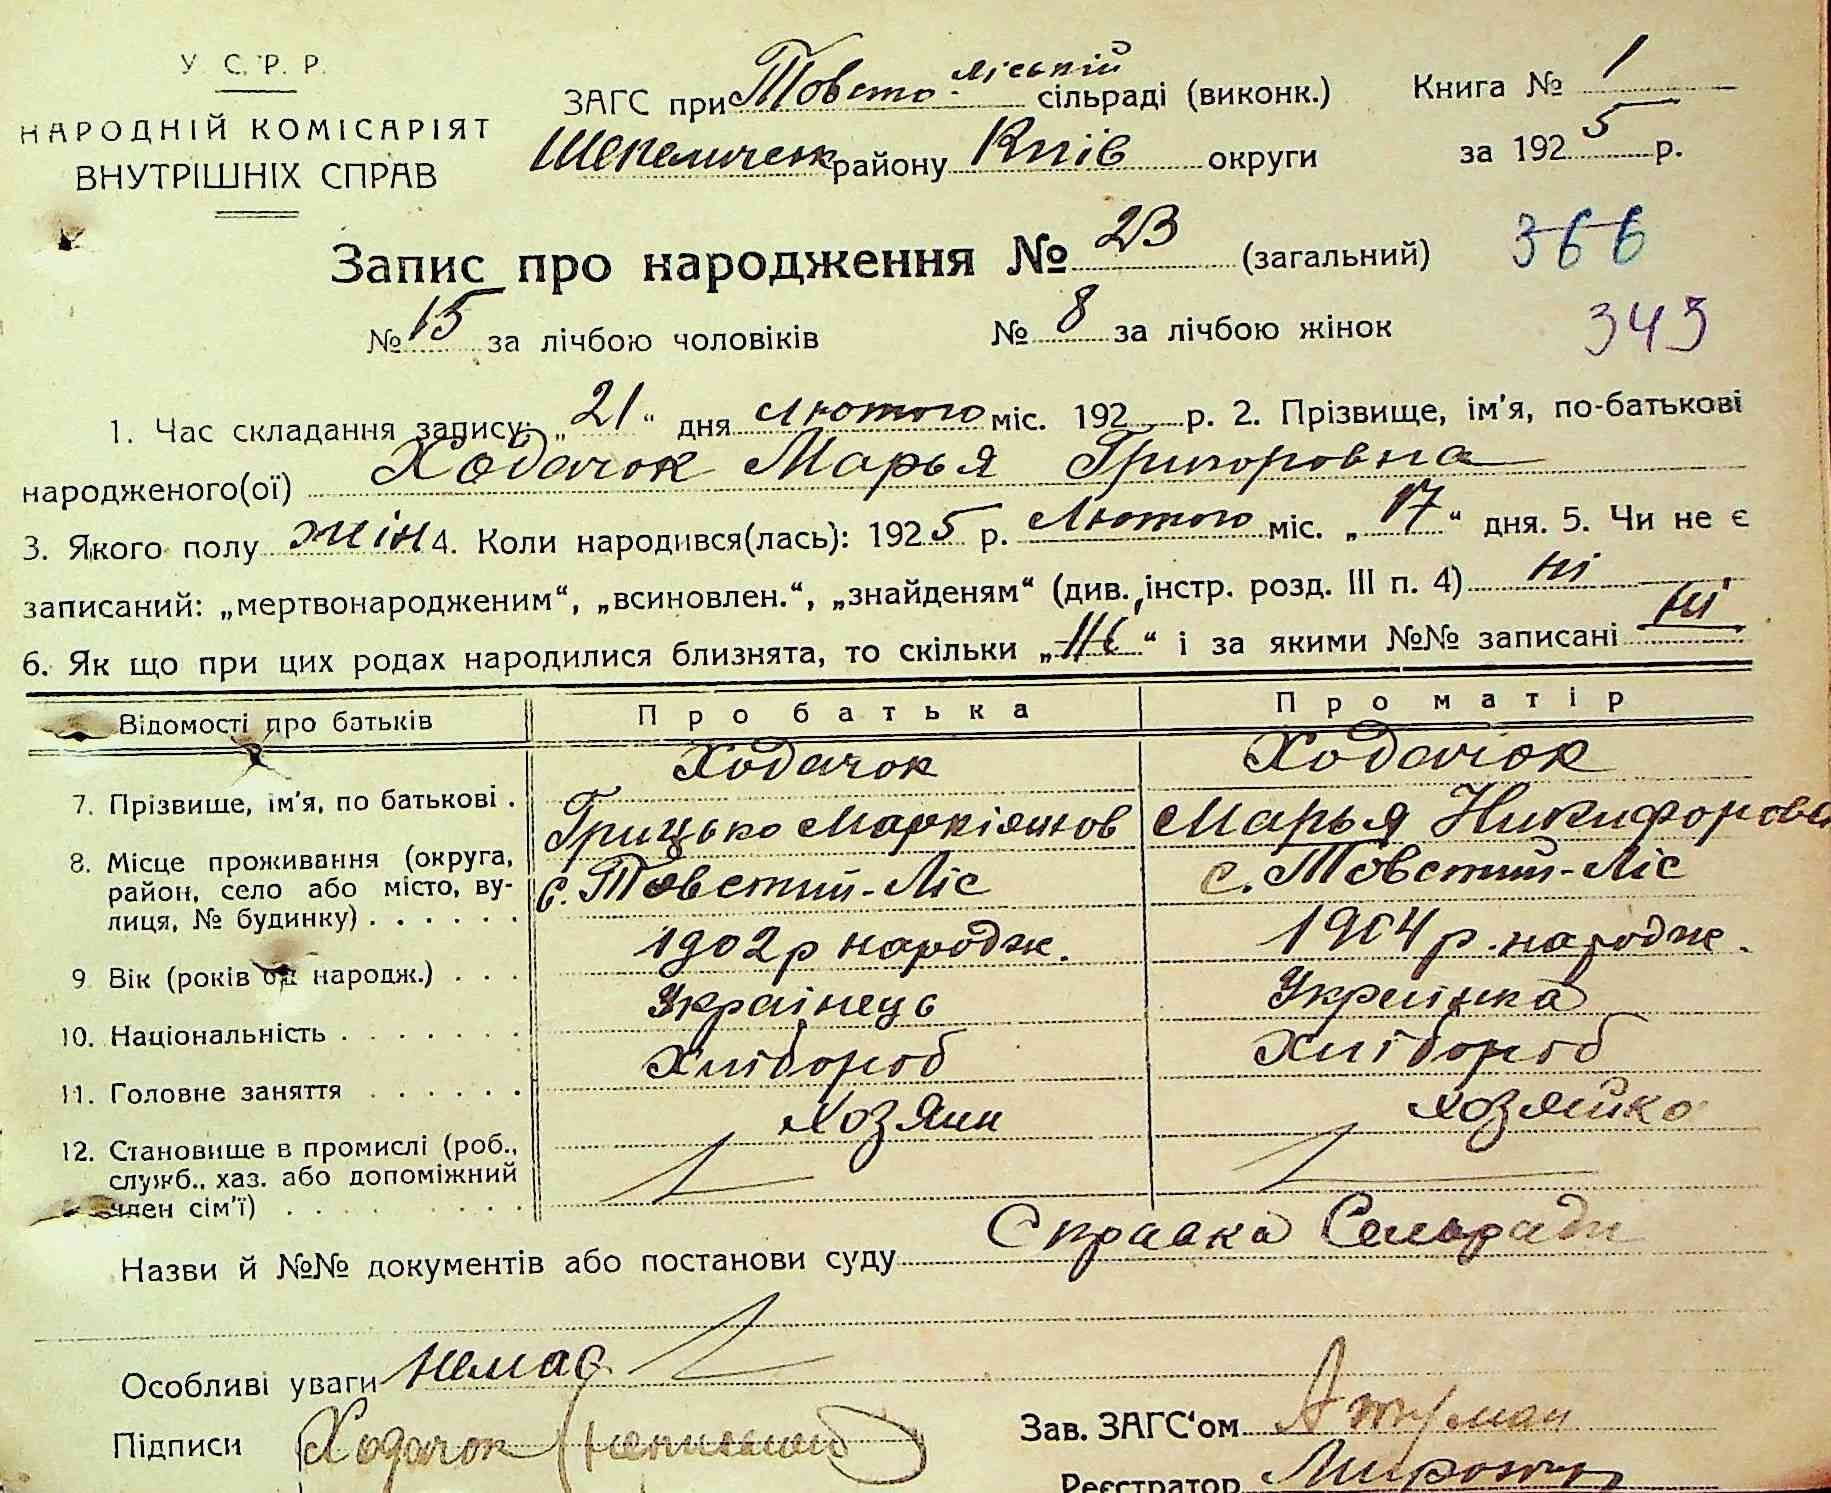 У С. Р. Р.
НАРОДНІЙ КОМІСАРІЯТ
ВНУТРІШНІХ СПРАВ
ЗАГС при Товсто-ліській сільраді (виконк.)
Шепелическ району Київ округи
Книга № 1
за 1925 р.
Запис про народження № 23 (загальний)
366
№ 15 за лічбою чоловіків № 8 за лічбою жінок
343
1. Час складання запису: „21“ дня лютого міс. 192 р. 2. Прізвище, ім'я, по-батькові
народженого(ої) Ходачок Марья Григоровна
3. Якого полу жін 4. Коли народився(лась): 1925 р. Лютого міс. „17“ дня. 5. Чи не є
записаний: „мертвонародженим“, „всиновлен.“, „знайденям“ (див. інстр. розд. III п. 4) ні
6. Як що при цих родах народилися близнята, то скільки „ “ і за якими №№ записані ні
Відомості про батьків Про батька Про матір
7. Прізвище, ім'я, по батькові . Ходачок Ходачок
Грицько Маркіянов Марья Никифоровн
8. Місце проживання (округа,
район, село або місто, ву-
лиця, № будинку) . . . . . . с. Товстий-Ліс с. Товстий-Ліс
9 Вік (років од народж.) . . . 1902 р народж. 1904 р. народж.
10. Національність . . . . . . . Українець Українка
11. Головне заняття . . . . . . Хлібороб Хлібороб
12. Становище в промислі (роб.,
служб., хаз. або допоміжний
член сім'ї) . . . . . . . . . Хозяин хозяйка
Назви й №№ документів або постанови суду Справка Сельради
Особливі уваги немає
Підписи Ходачок (неписьмен)
Зав. ЗАГС'ом
Реєстратор